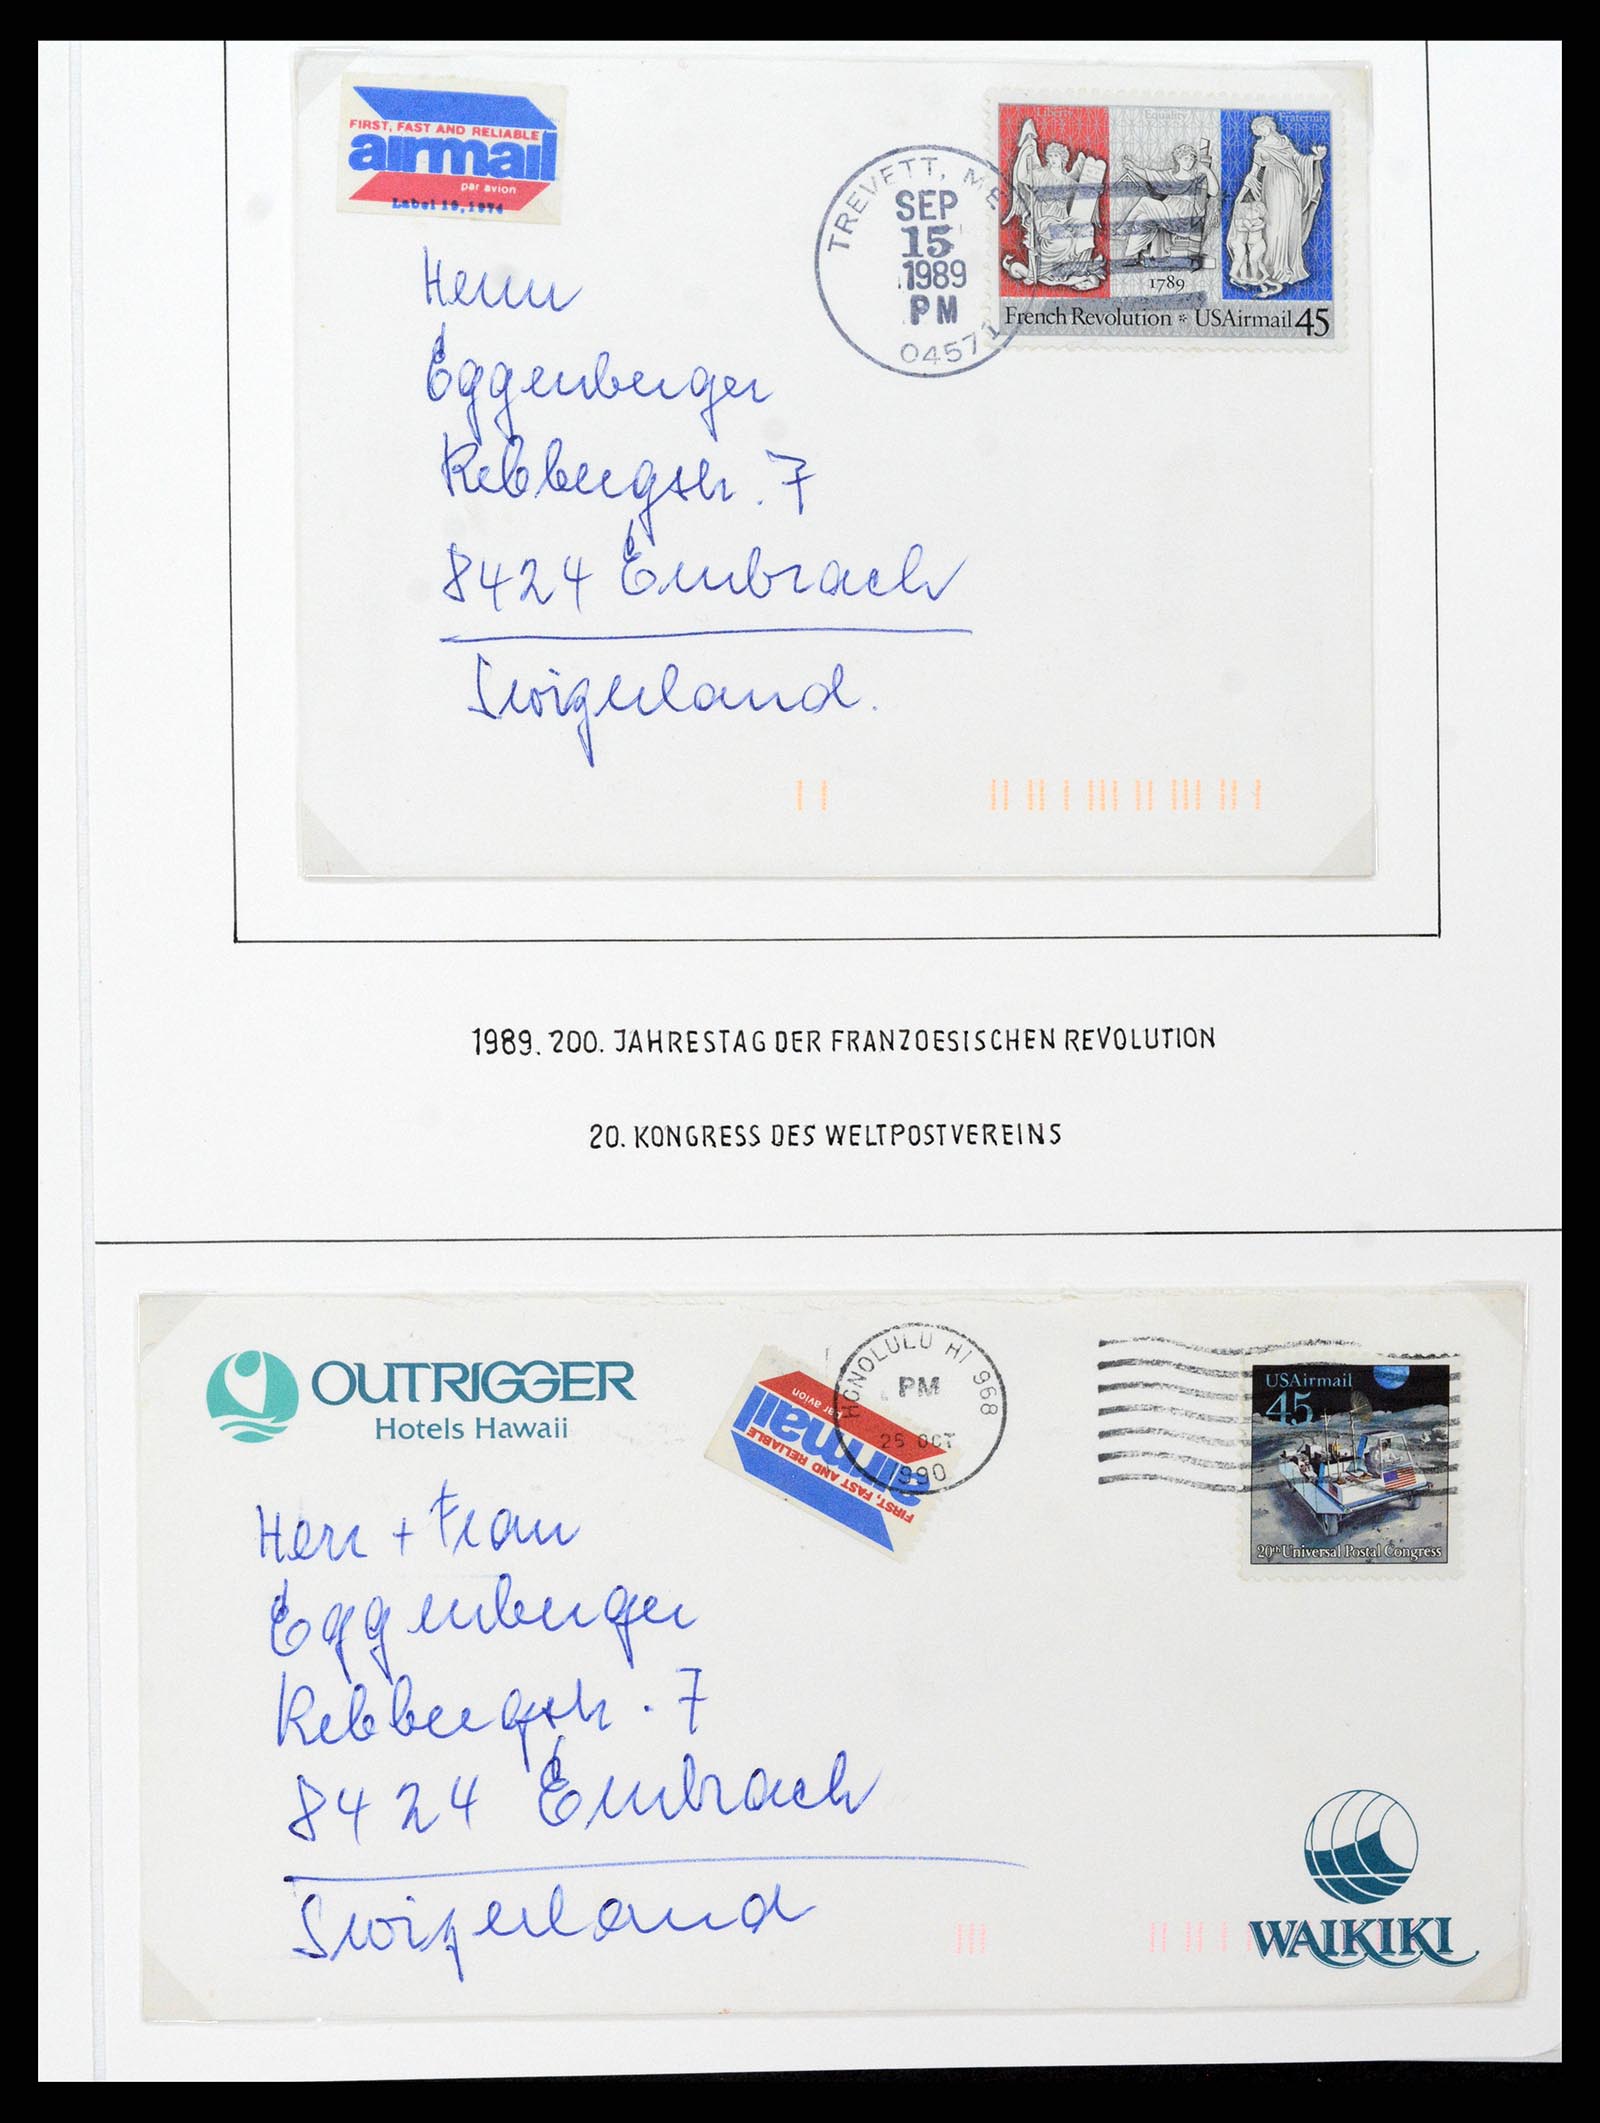 FIRST, FAST AND RELIABLE
airmail
par avion
Label 19, 1974
TREVETT, ME
SEP
15
1989
PM
04571
Liberty
Equality
Fraternity
1789
French Revolution * USAirmail 45
Herrn
Eggenberger
Rebbergstr. 7
8424 Embrach
Swizerland.
1989. 200. JAHRESTAG DER FRANZOESISCHEN REVOLUTION
20. KONGRESS DES WELTPOSTVEREINS
OUTRIGGER
Hotels Hawaii
FIRST, FAST AND RELIABLE
airmail
par avion
HONOLULU HI 968
PM
25 OCT
1990
USAirmail
45
20th Universal Postal Congress
Herr + Frau
Eggenberger
Rebbergstr. 7
8424 Embrach
Swizerland
WAIKIKI